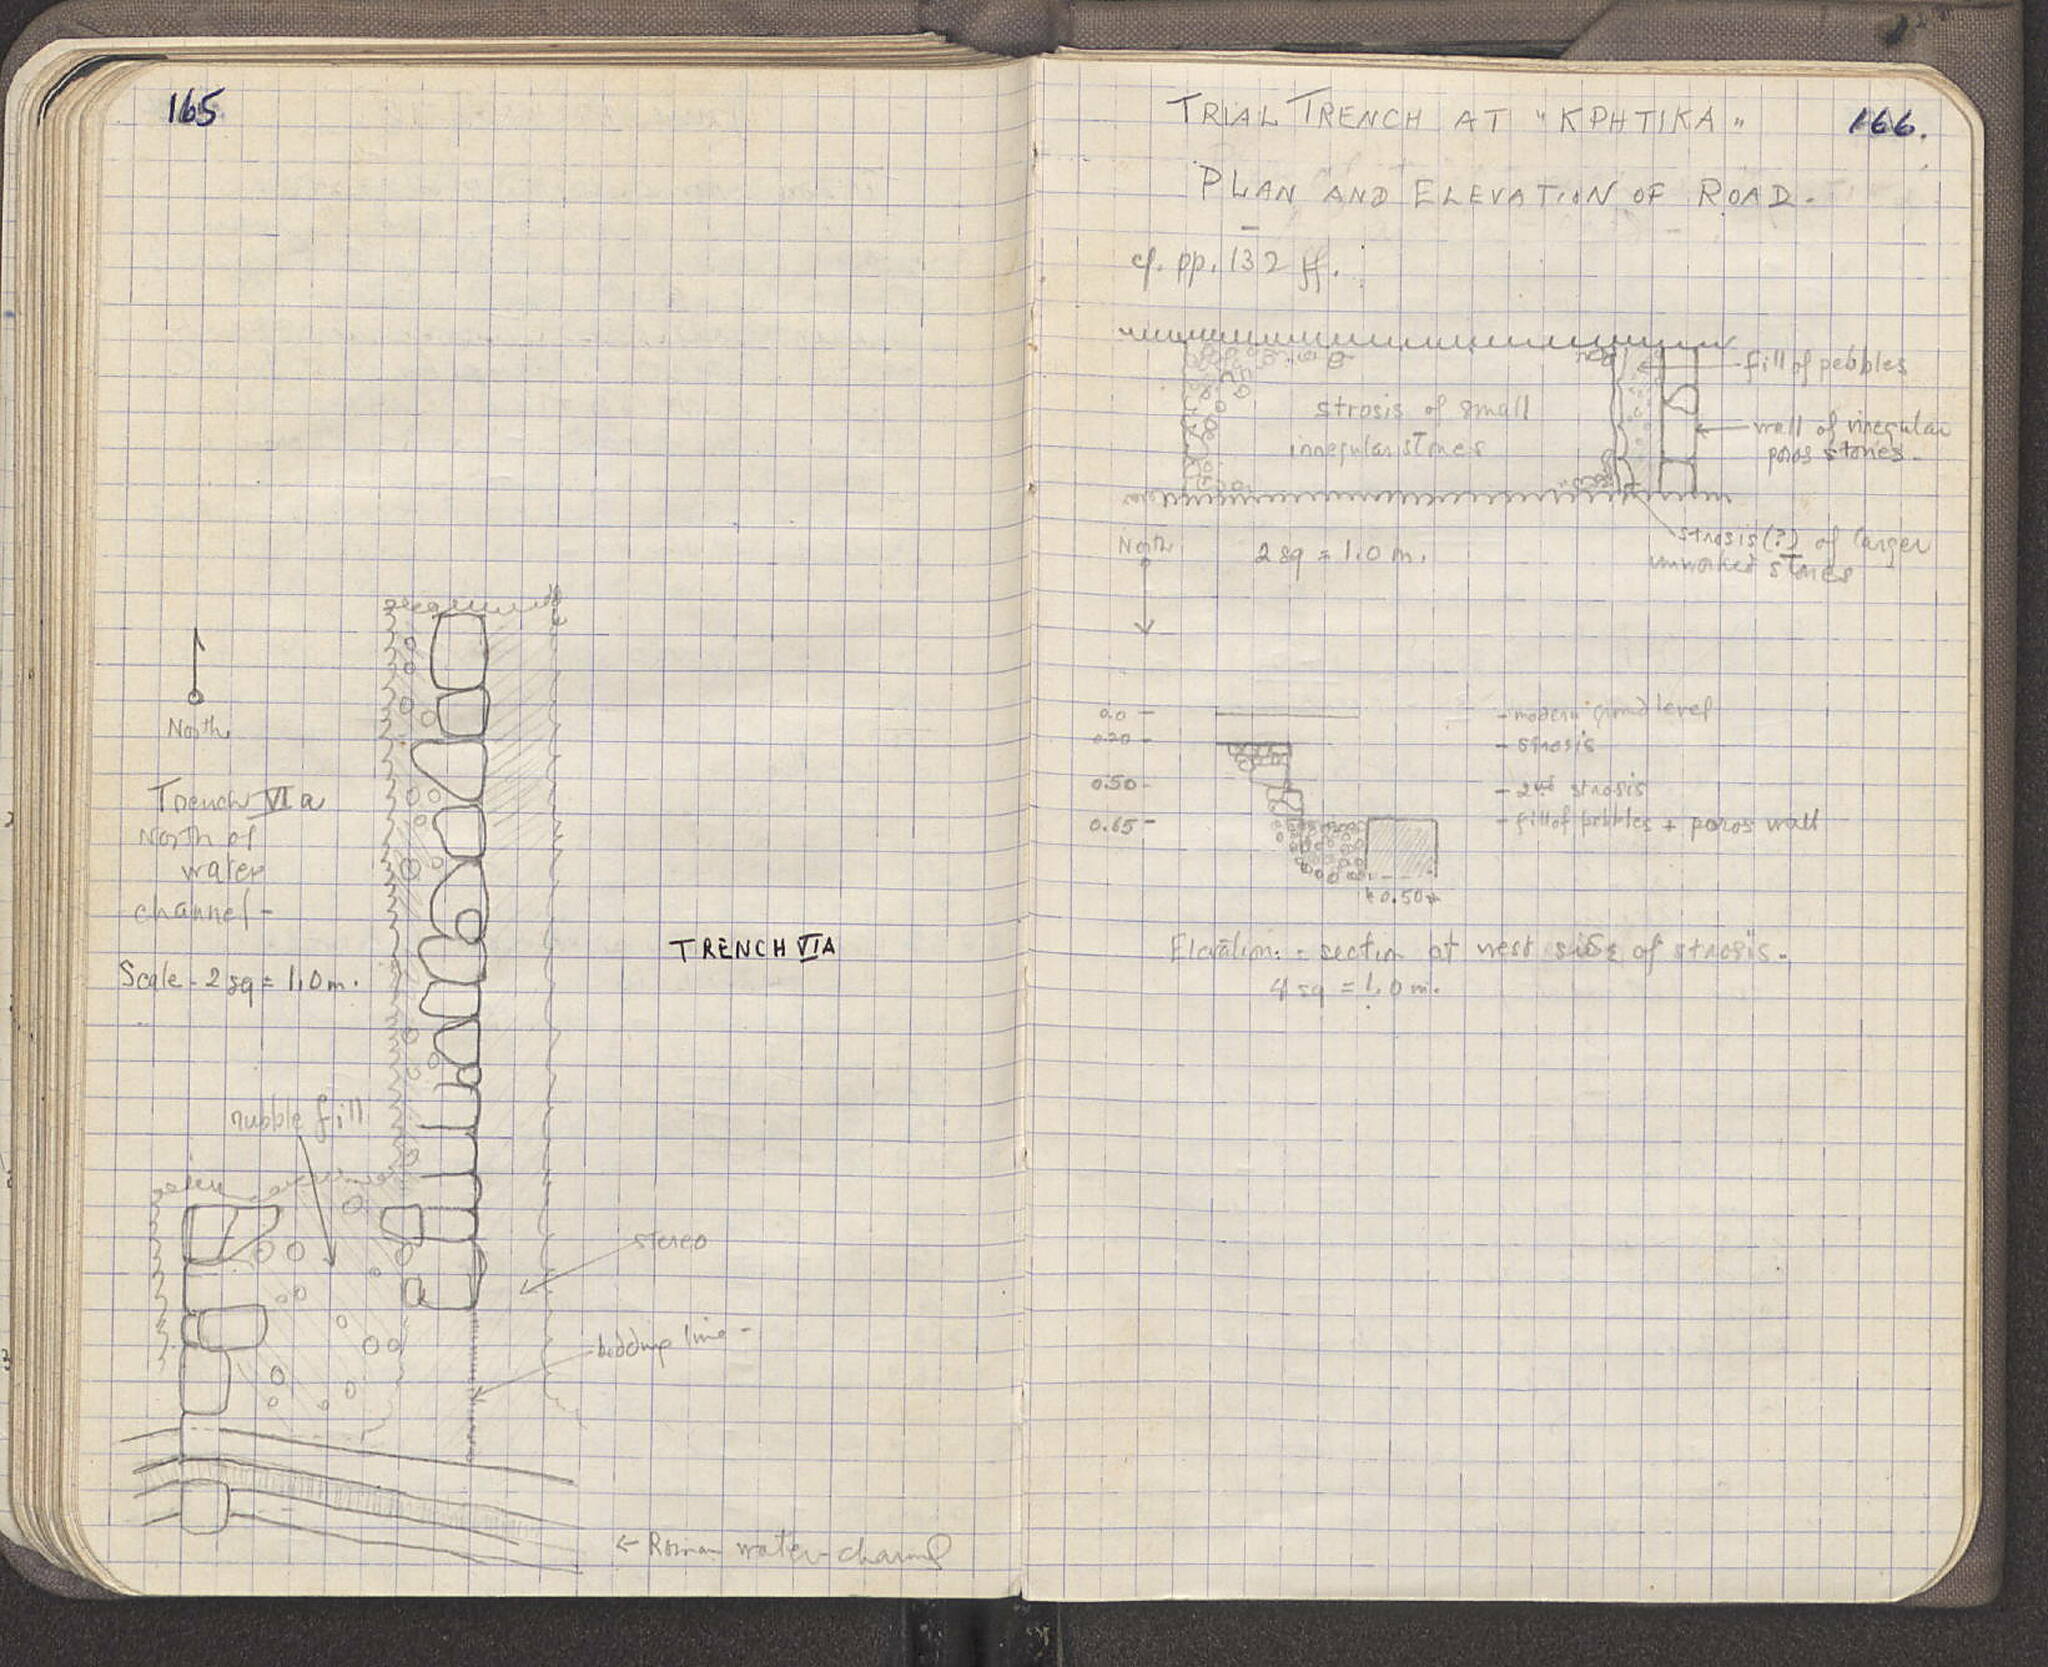 165
North
Trench VI a
North of
water
channel -
Scale - 2 sq = 1.0 m.
TRENCH VIA
rubble fill
stereo
bedding line -
← Roman water-channel
166.
TRIAL TRENCH AT "ΚΡΗΤΙΚΑ"
PLAN AND ELEVATION OF ROAD.
cf. pp. 132 ff.
fill of pebbles
strosis of small
irregular stones
wall of irregular
poros stones.
strosis (?) of larger
unworked stones
North
2 sq = 1.0 m.
0.0 - - modern ground level
0.20 - - strosis
0.50 - - 2nd strosis
0.65 - - fill of pebbles + poros wall
0.50
Elevation: = section at west side of strosis.
4 sq = 1.0 m.